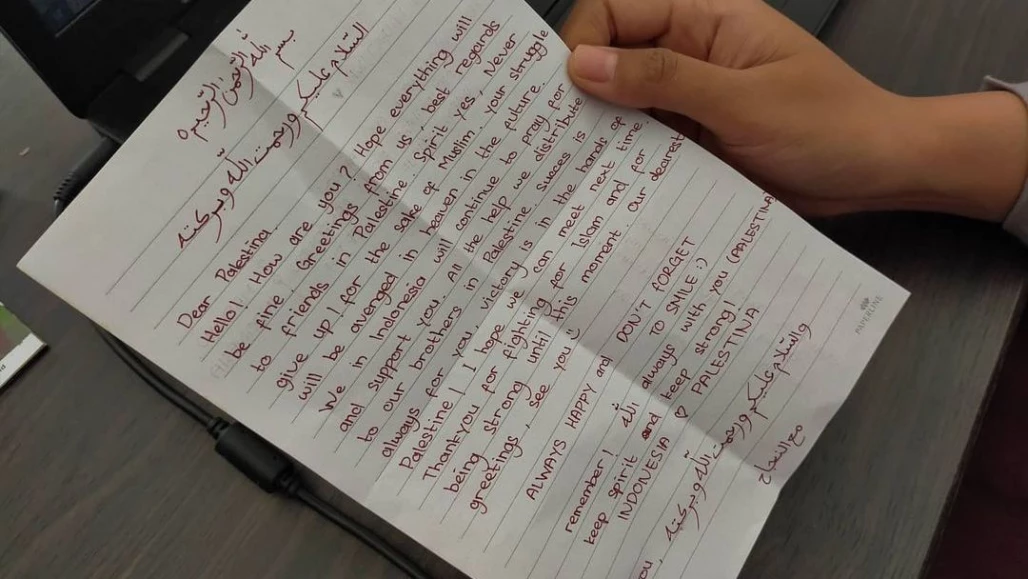 بسم الله الرحمن الرحيم ٥
السلام عليكم ورحمت الله وبركته
Dear Palestina.
Hello! How are you? Hope everything will
be fine. Greetings from us, best regards
to friends in Palestine. Spirit yes, Never
give up! for the sake of Muslim. your struggle
will be avenged in heaven in the future.
We in Indonesia will continue to pray for
and support you. All the help we distribute
to our brothers in Palestine. Succes is
always for you, victory is in the hands of
Palestine! I hope we can meet next time.
Thankyou for fighting for Islam and for
being strong until this moment our dearest
greetings, see you"
ALWAYS HAPPY and DON'T FORGET
TO SMILE :)
remember! الله always with you (PALESTINA)
keep spirit and keep strong!
INDONESIA ♡ PALESTINA
والسلام عليكم ورحمت الله وبركته
مع النجاح
PAPERLINE